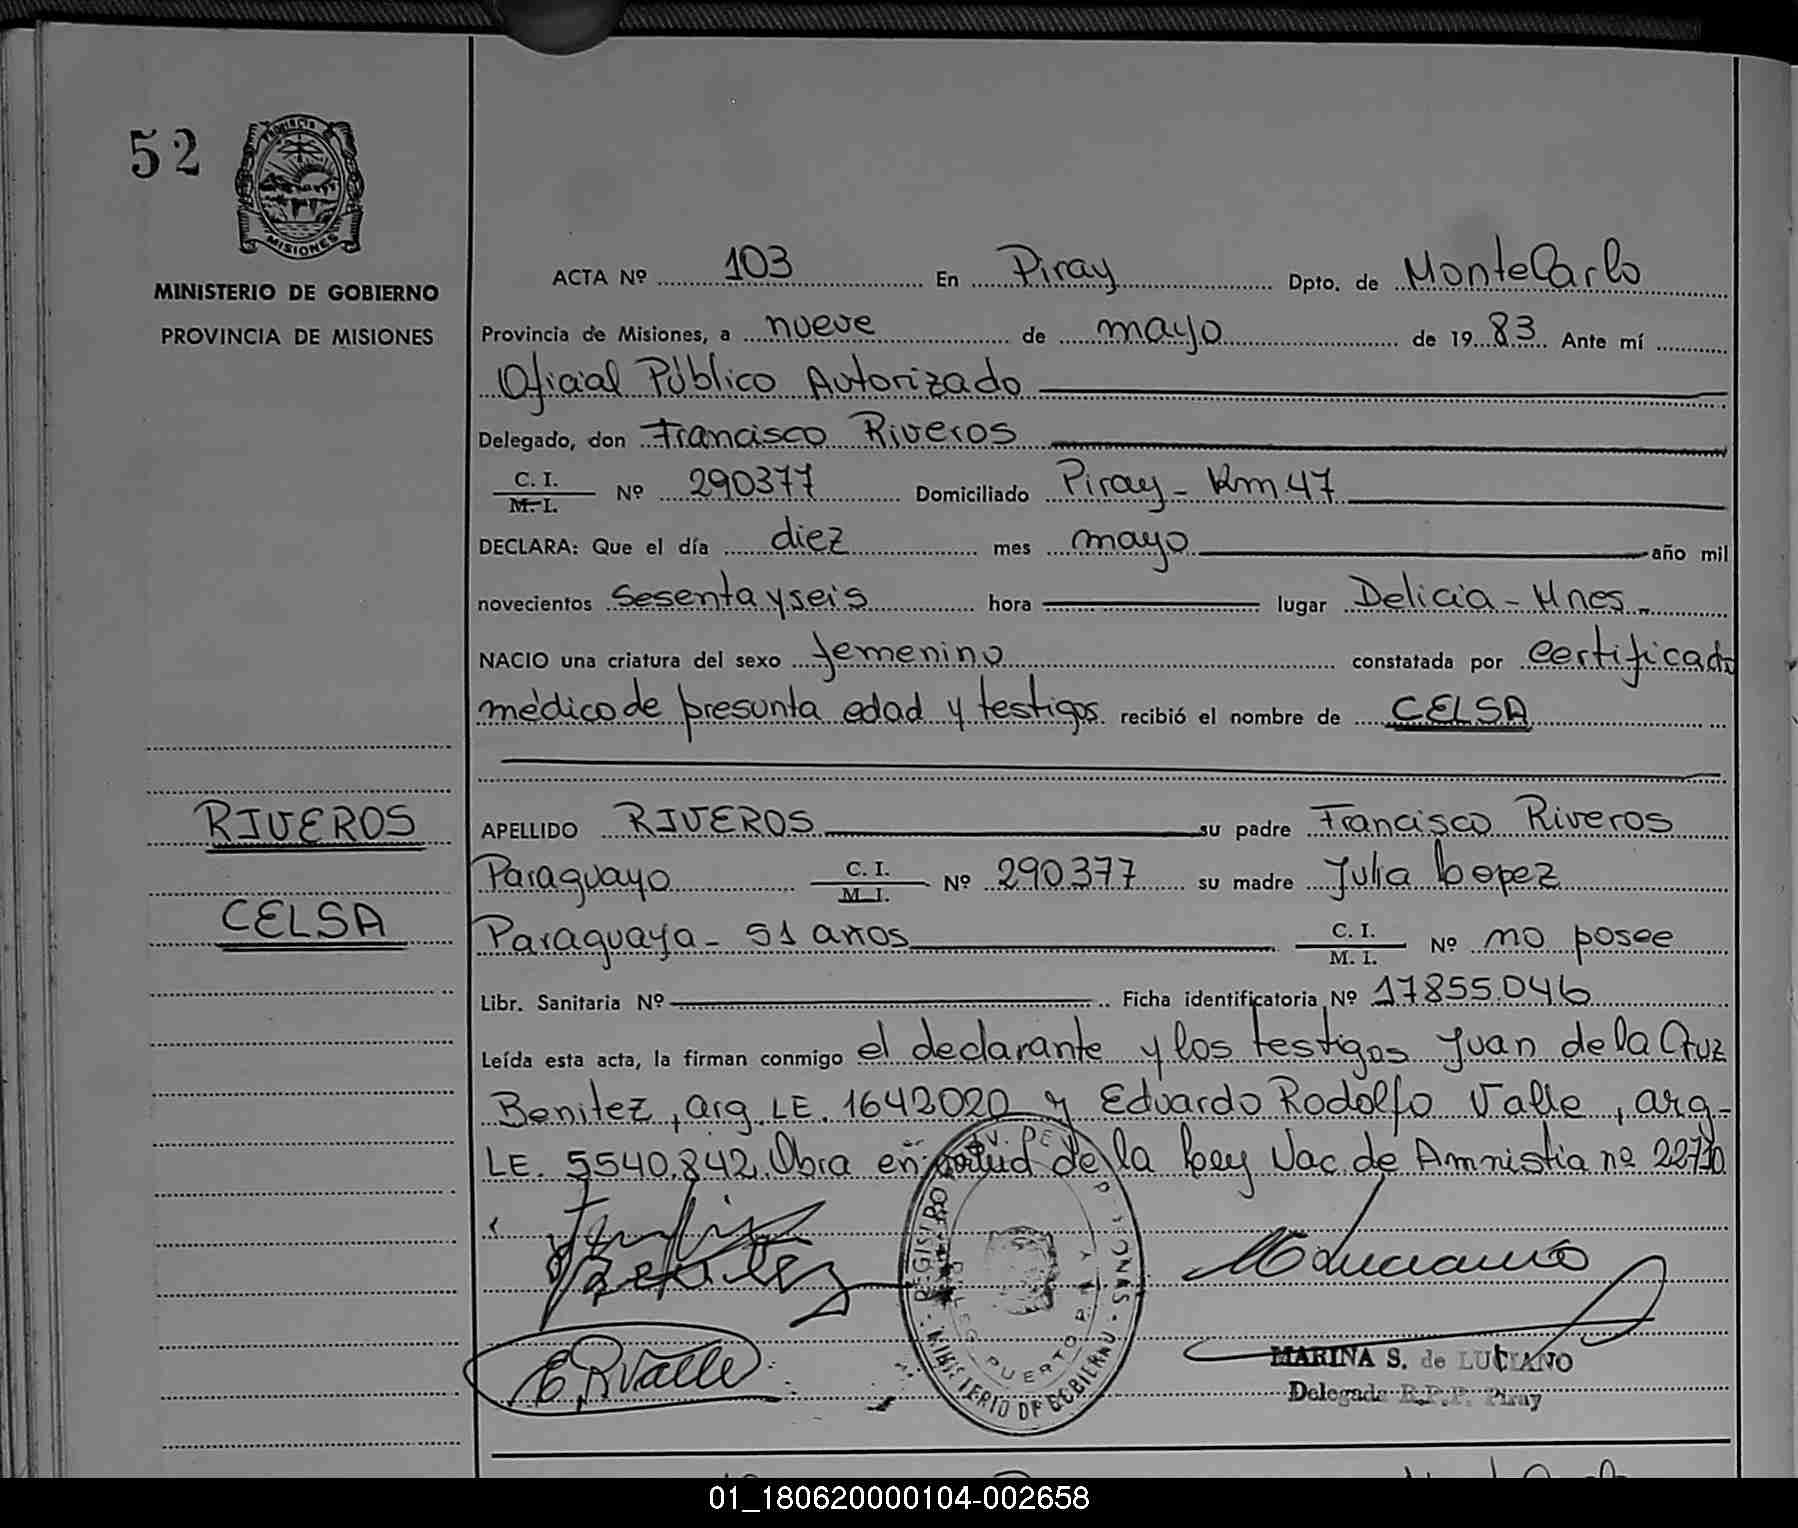 52
PROVINCIA DE
MISIONES
MINISTERIO DE GOBIERNO
PROVINCIA DE MISIONES
ACTA Nº 103 En Piray Dpto. de MonteCarlo
Provincia de Misiones, a nueve de mayo de 19 83 Ante mí
Oficial Público Autorizado
Delegado, don Francisco Riveros
C. I.
M. I. Nº 290377 Domiciliado Piray - Km 47
DECLARA: Que el día diez mes mayo año mil
novecientos sesenta y seis hora lugar Delicia - Mnes.
NACIO una criatura del sexo femenino constatada por certificado
médico de presunta edad y testigos recibió el nombre de CELSA
RIVEROS
APELLIDO RIVEROS su padre Francisco Riveros
Paraguayo C. I. M. I. Nº 290377 su madre Julia Lopez
CELSA
Paraguaya - 51 años C. I. M. I. Nº no posee
Libr. Sanitaria Nº Ficha identificatoria Nº 17855.046
Leída esta acta, la firman conmigo el declarante y los testigos Juan de la Cruz
Benitez, arg. LE. 1642020 y Eduardo Rodolfo Valle, arg-
LE. 5540.842. Obra en virtud de la Ley Nac. de Amnistia nº
REGISTRO PROV. DE
MINISTERIO DE GOBIERNO
PUERTO PIRAY
Benitez
E R Valle
MARINA S. de LUCIANO
Delegada R.P.P. Piray
01_180620000104-002658